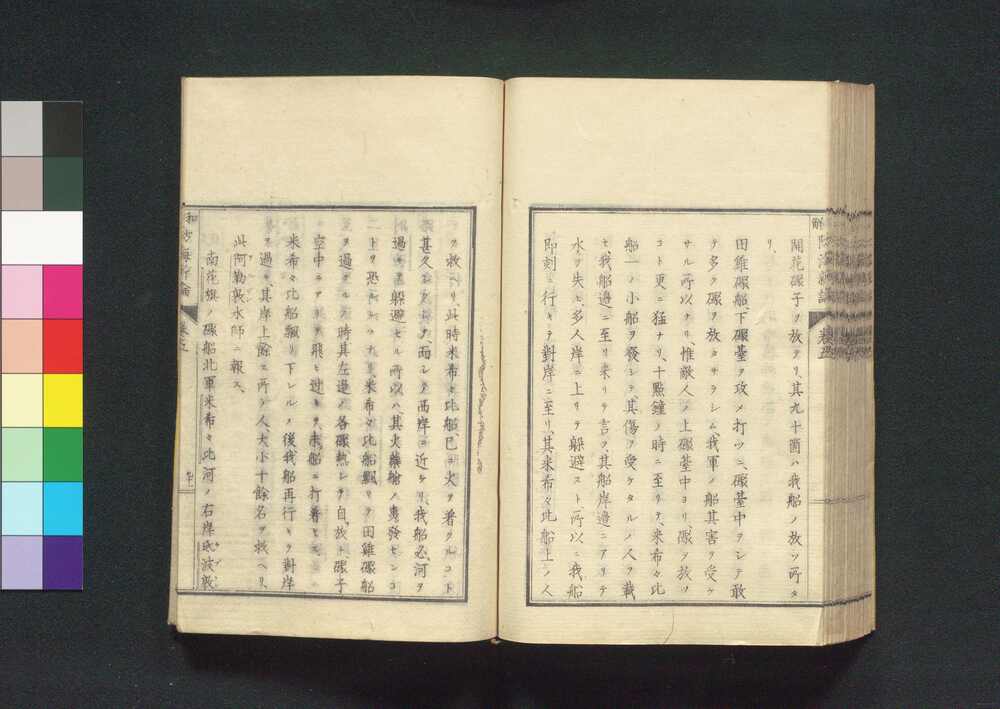 開花礮子ヲ放テリ、其九十箇ハ我船ノ放ツ所タ
リ、
田雞礮船、下礮臺ヲ攻メ打ツニ、礮臺中ヲシテ敢
テ多ク礮ヲ放タサラシム、我軍ノ船其害ヲ受ケ
サル所以ナリ、惟敵人ノ上礮臺中ヨリ、礮ヲ放ツ
コト更ニ猛ナリ、十點鐘ノ時ニ至リテ、米希々比
船一ノ小船ヲ發シテ其傷ヲ受ケタルノ人ヲ載
セ、我船邊ニ至リ来リテ言フ、其船岸邊ニアリテ
水ヲ失ヒ、多人岸ニ上リテ躲避スト、所以ニ我船
即刻ニ行キテ對岸ニ至リ、其米希々比船上ノ人
ヲ救ヘリ、此時米希々比船已ニ火ヲ着クルコト
甚久、而シテ西岸ニ近ケリ、我船必河ヲ
過キテ躲避セル所以ハ、其火藥艙ノ轟發センコ
トヲ恐レ、米希々比船飄リテ田雞礮船
ヲ過クル時、其左邊ノ各礮熱シテ自放ト、礮子
空中ニアリテ飛ヒ過キテ、未船ニ打着セス
米希々比船飄リ下レルノ後、我船再行キテ對岸
ヲ過キ、其岸上餘ス所ノ人、大小十餘名ヲ救ヘリ、
此阿勒敦水師ニ報ス、
南花旗ノ礮船北軍米希々比河ノ右岸砥波敦
卷五
卷五